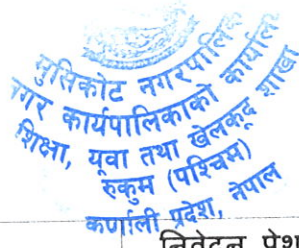 मुसिकोट नगरपालिका
नगर कार्यपालिकाको कार्यालय
शिक्षा, युवा तथा खेलकूद शाखा
रुकुम (पश्चिम)
कर्णाली प्रदेश, नेपाल
निवेदन पेश